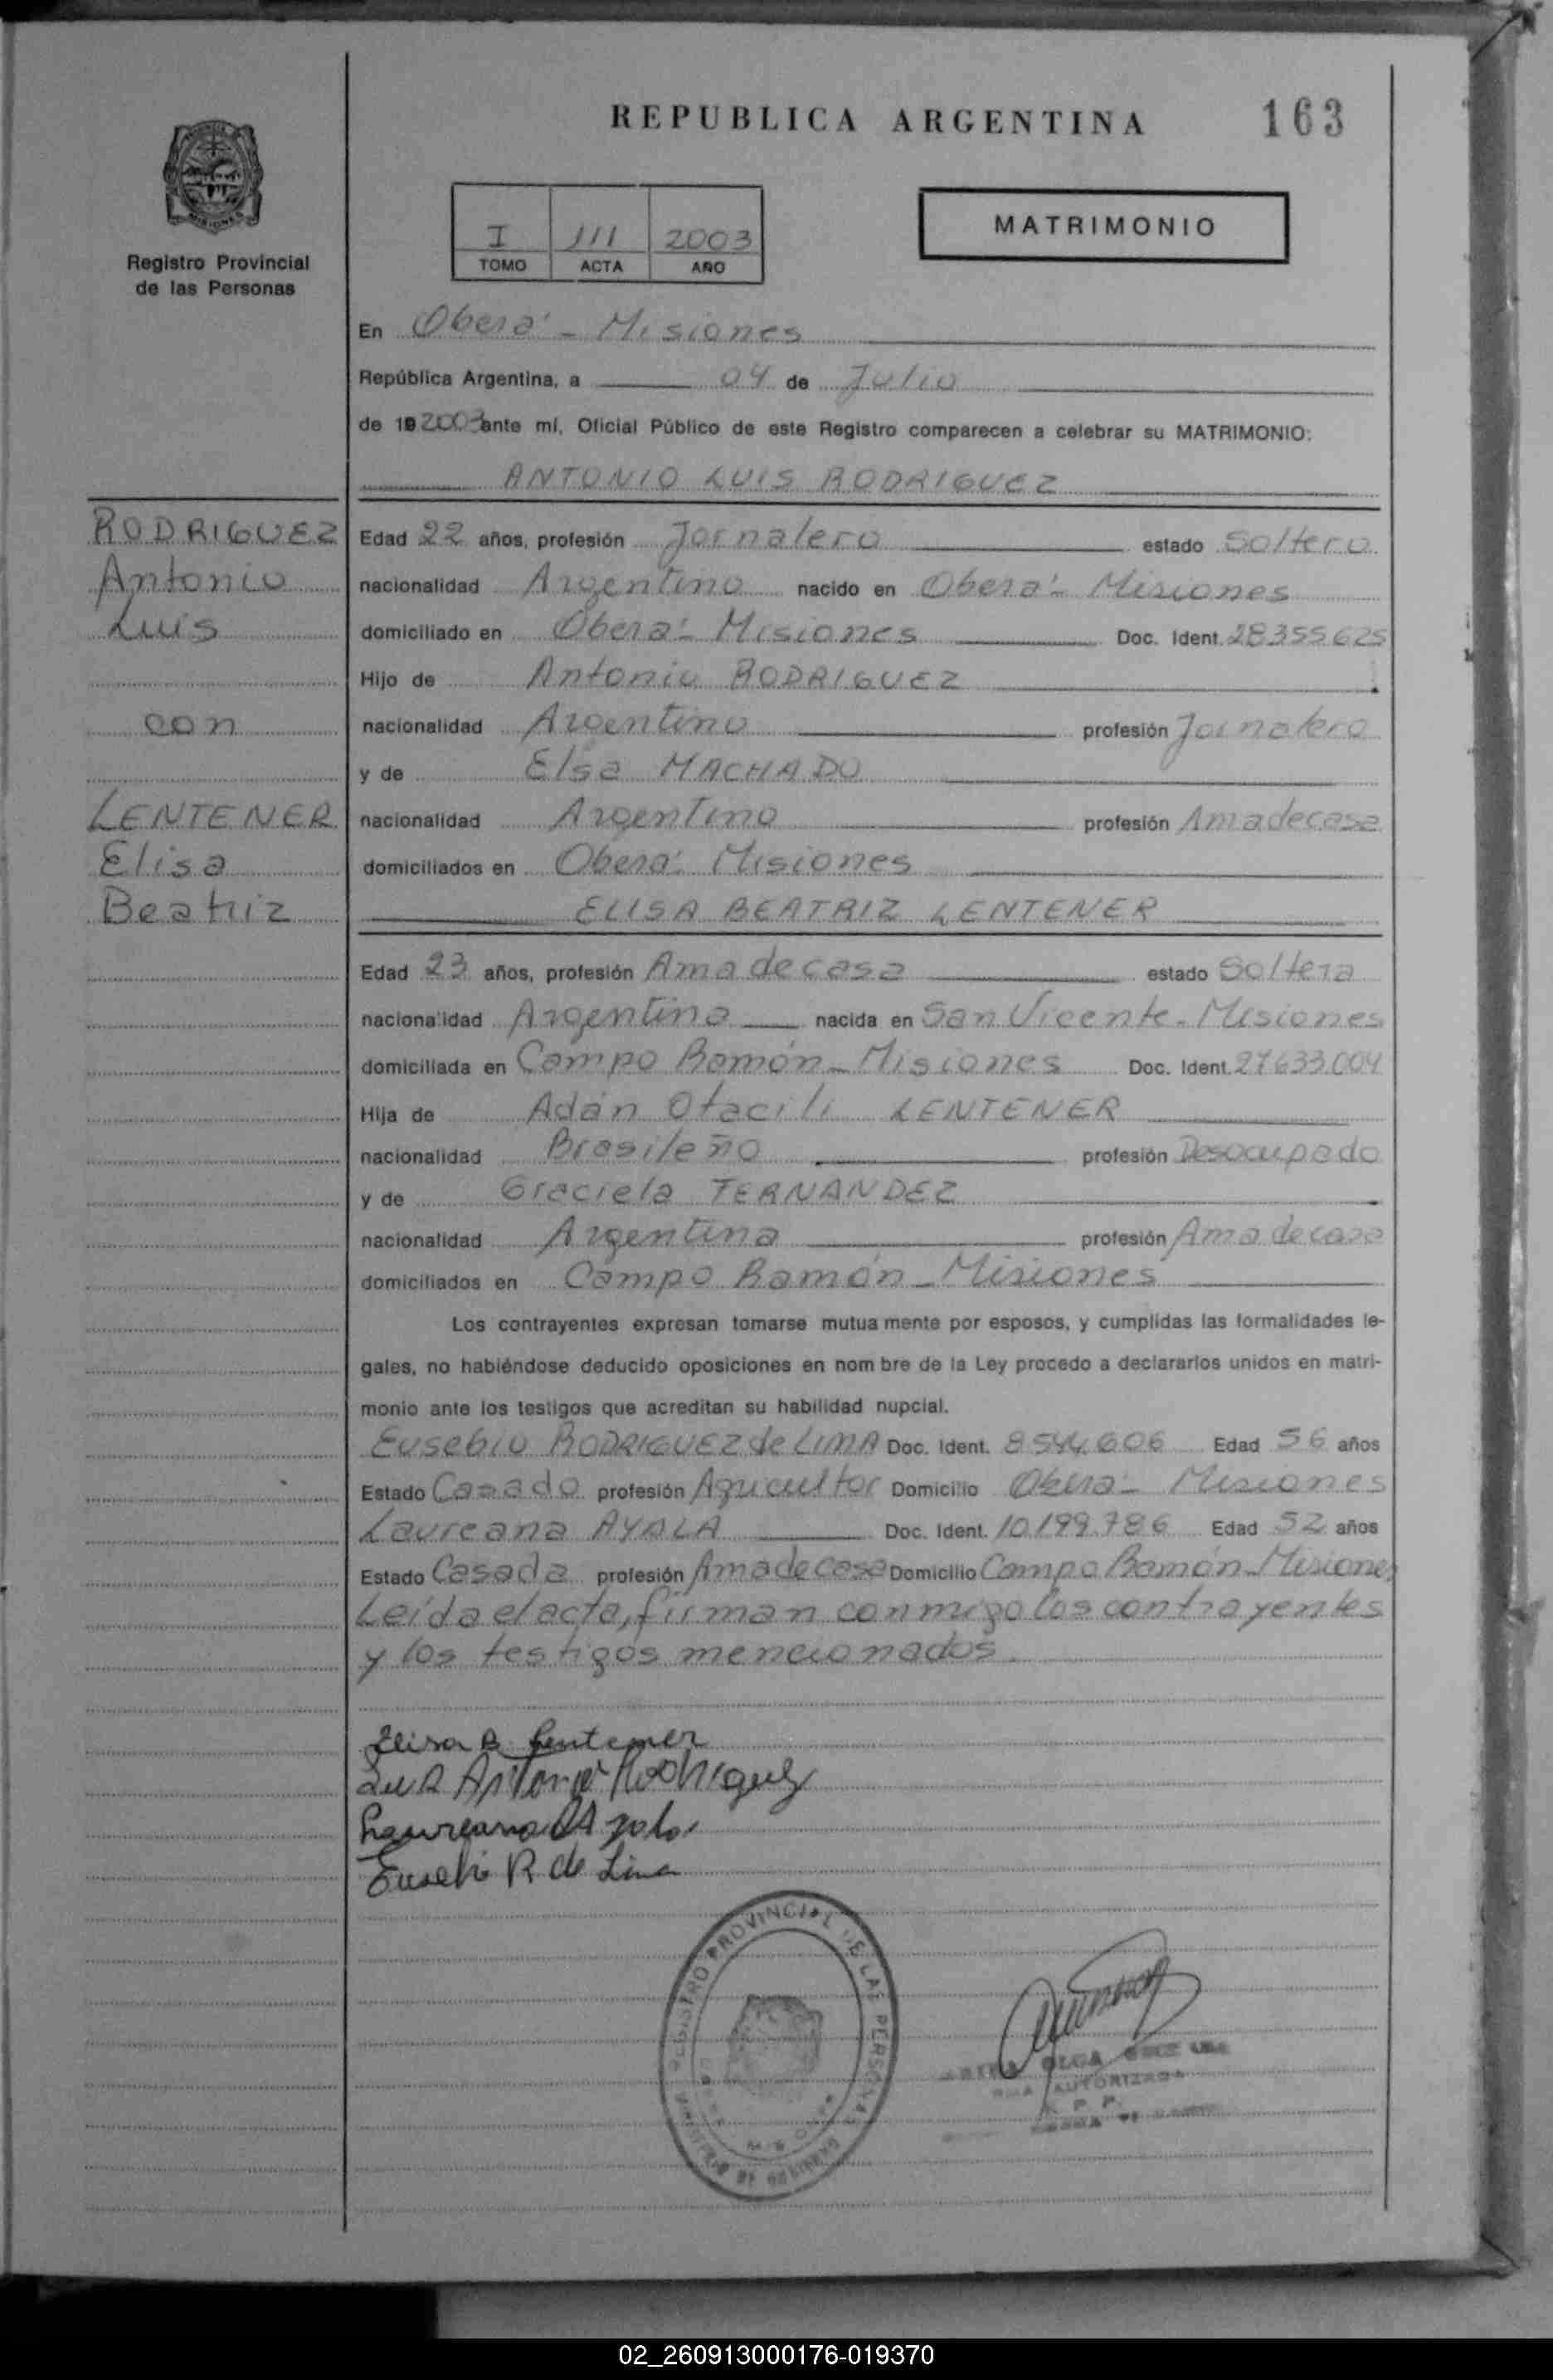 REPUBLICA ARGENTINA 163
Registro Provincial
de las Personas
I 111 2003
TOMO ACTA AÑO
MATRIMONIO
En Oberá - Misiones
República Argentina, a 04 de Julio
de 19 2003 ante mí, Oficial Público de este Registro comparecen a celebrar su MATRIMONIO:
ANTONIO LUIS RODRIGUEZ
RODRIGUEZ
Antonio
Luis
con
LENTENER
Elisa
Beatriz
Edad 22 años, profesión Jornalero estado Soltero
nacionalidad Argentino nacido en Oberá - Misiones
domiciliado en Oberá - Misiones Doc. Ident. 28.355.625
Hijo de Antonio RODRIGUEZ
nacionalidad Argentino profesión Jornalero
y de Elsa MACHADO
nacionalidad Argentina profesión Ama de casa
domiciliados en Oberá - Misiones
ELISA BEATRIZ LENTENER
Edad 23 años, profesión Ama de casa estado Soltera
nacionalidad Argentina nacida en San Vicente - Misiones
domiciliada en Campo Ramón - Misiones Doc. Ident. 27.633.004
Hija de Adán Otacili LENTENER
nacionalidad Brasileño profesión Desocupado
y de Graciela FERNANDEZ
nacionalidad Argentina profesión Ama de casa
domiciliados en Campo Ramón - Misiones
Los contrayentes expresan tomarse mutua mente por esposos, y cumplidas las formalidades le-
gales, no habiéndose deducido oposiciones en nom bre de la Ley procedo a declararlos unidos en matri-
monio ante los testigos que acreditan su habilidad nupcial.
Eusebio RODRIGUEZ de LIMA Doc. Ident. 8.544.606 Edad 56 años
Estado Casado profesión Agricultor Domicilio Oberá - Misiones
Laureana AYALA Doc. Ident. 10.199.786 Edad 52 años
Estado Casada profesión Ama de casa Domicilio Campo Ramón - Misiones
Leída el acta, firman conmigo los contrayentes
y los testigos mencionados.
Elisa B Lentener
Luis Antonio Rodriguez
Laureana Ayala
Eusebio R de Lima
REGISTRO PROVINCIAL DE LAS PERSONAS
OLGA
AUTORIZADA
R. P. P.
02_260913000176-019370